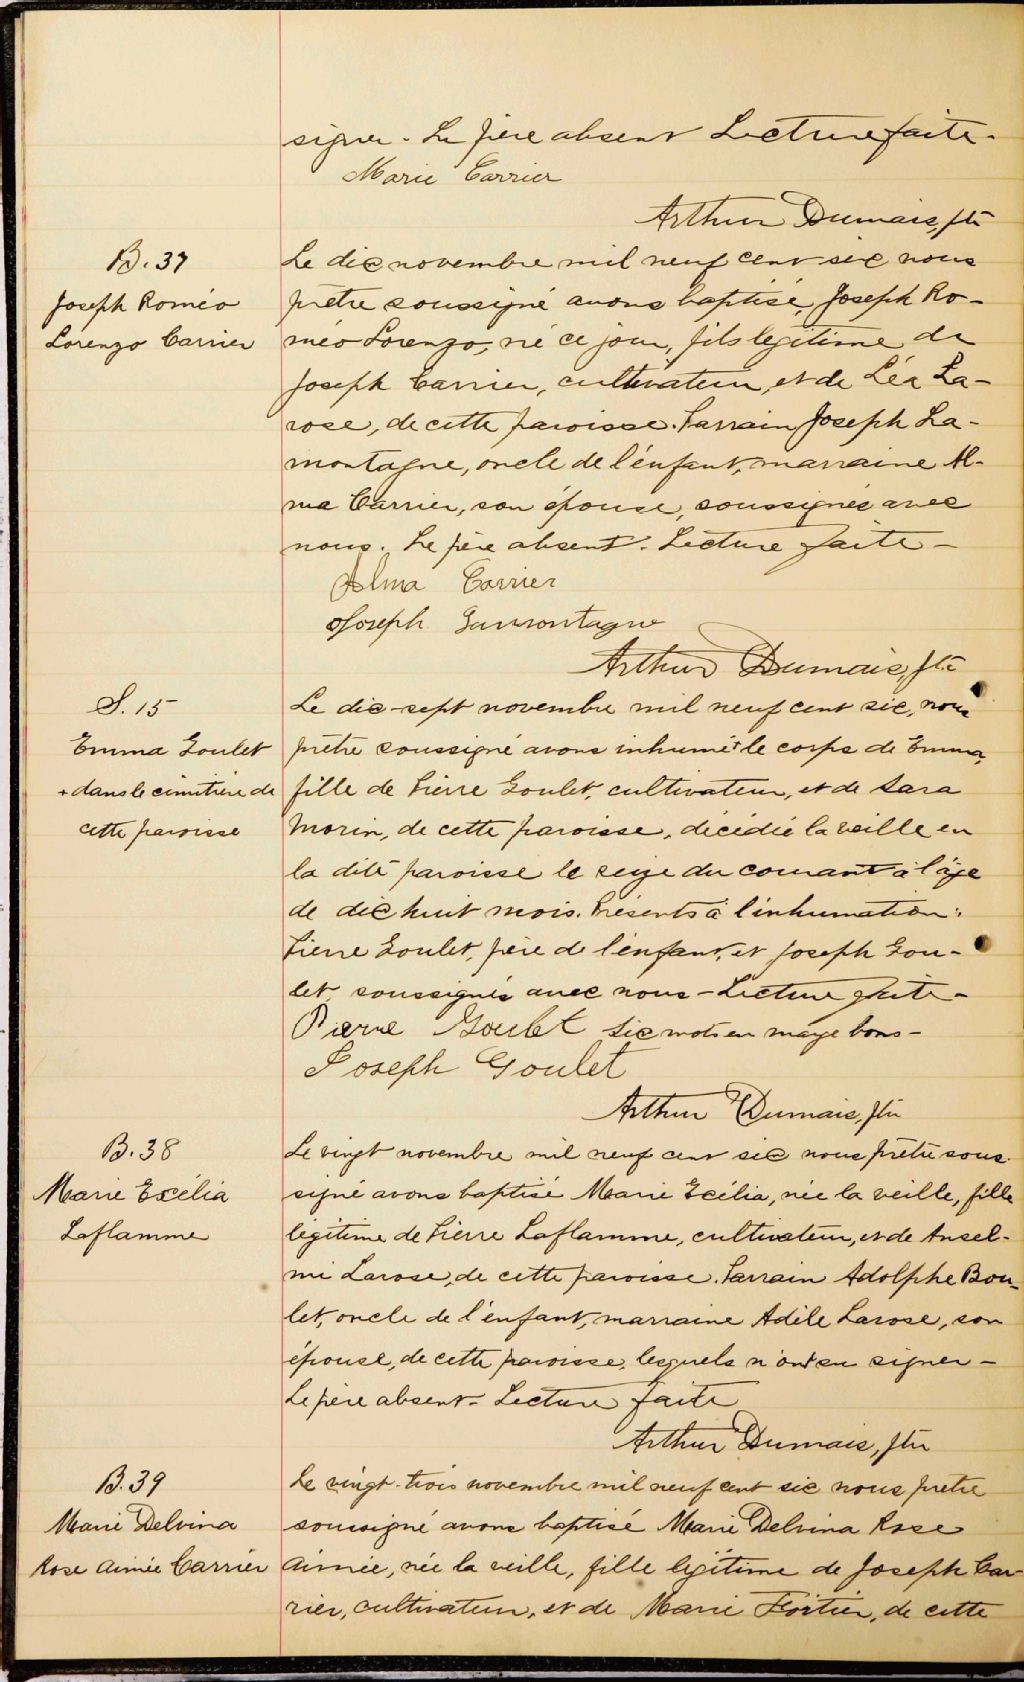 signer. Le père absent Lecture faite.
Marie Carrier
Arthur Dumais, ptr
B. 37
Joseph Roméo
Lorenzo Carrier
Le dix novembre mil neuf cent six nous
prêtre soussigné avons baptisé, Joseph Ro-
méo Lorenzo, né ce jour, fils légitime de
Joseph Carrier, cultivateur, et de Léa La-
rose, de cette paroisse. Parrain Joseph La-
montagne, oncle de l'enfant, marraine Al-
ma Carrier, son épouse, soussignés avec
nous. Le père absent. Lecture faite -
Alma Carrier
Joseph Lamontagne
Arthur Dumais, ptr
S. 15
Emma Goulet
+ dans le cimitière de
cette paroisse
Le dix-sept novembre mil neuf cent six, nous
prêtre soussigné avons inhumé + le corps de Emma,
fille de Pierre Goulet, cultivateur, et de Sara
Morin, de cette paroisse, décédée la veille en
la dite paroisse le seize du courant à l'âge
de dix huit mois. Présents à l'inhumation:
Pierre Goulet, père de l'enfant, et Joseph Gou-
let, soussignés avec nous - Lecture faite -
Pierre Goulet Six mots en marge bons -
Joseph Goulet
Arthur Dumais, ptr
B. 38
Marie Exélia
Laflamme
Le vingt novembre mil neuf cent six nous prêtre sous
signé avons baptisé Marie Exélia, née la veille, fille
légitime de Pierre Laflamme, cultivateur, et de Ansel-
mi Larose, de cette paroisse. Parrain Adolphe Bou-
let, oncle de l'enfant, marraine Adèle Larose, son
épouse, de cette paroisse, lesquels n'ont su signer -
Le père absent - Lecture faite
Arthur Dumais, ptr
B. 39
Marie Delvina
Rose Aimée Carrier
Le vingt-trois novembre mil neuf cent six nous prêtre
soussigné avons baptisé Marie Delvina Rose
Aimée, née la veille, fille légitime de Joseph Car-
rier, cultivateur, et de Marie Fortier, de cette